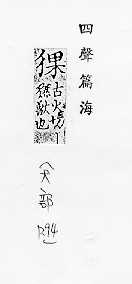 四聲篇海
猓
古火切
獸也
(犬)部
P.94